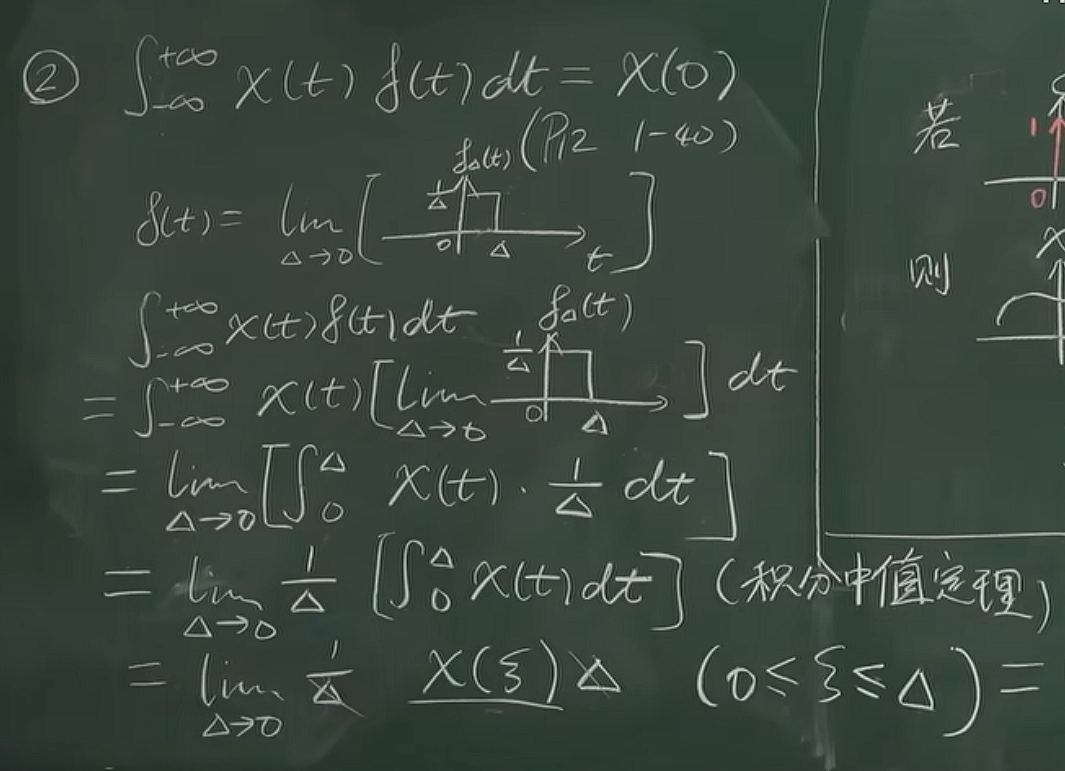 ② ∫_{-∞}^{+∞} x(t) δ(t) dt = x(0)
(P12 1-40)
δ(t) = lim_{Δ→0} [ δ_Δ(t) 1/Δ 0 Δ t ]
∫_{-∞}^{+∞} x(t) δ(t) dt
= ∫_{-∞}^{+∞} x(t) [ lim_{Δ→0} δ_Δ(t) 1/Δ 0 Δ ] dt
= lim_{Δ→0} [ ∫_0^Δ x(t) · 1/Δ dt ]
= lim_{Δ→0} 1/Δ [ ∫_0^Δ x(t) dt ] (积分中值定理)
= lim_{Δ→0} 1/Δ x(ξ) Δ (0 ≤ ξ ≤ Δ) =
若
1
0
则